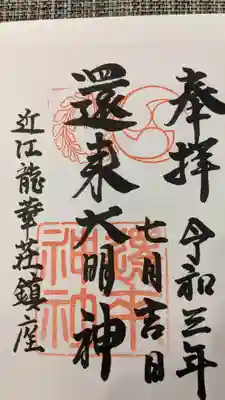 奉拝
令和三年
七月吉日
還来大明神
近江龍華荘鎮座
還来神社